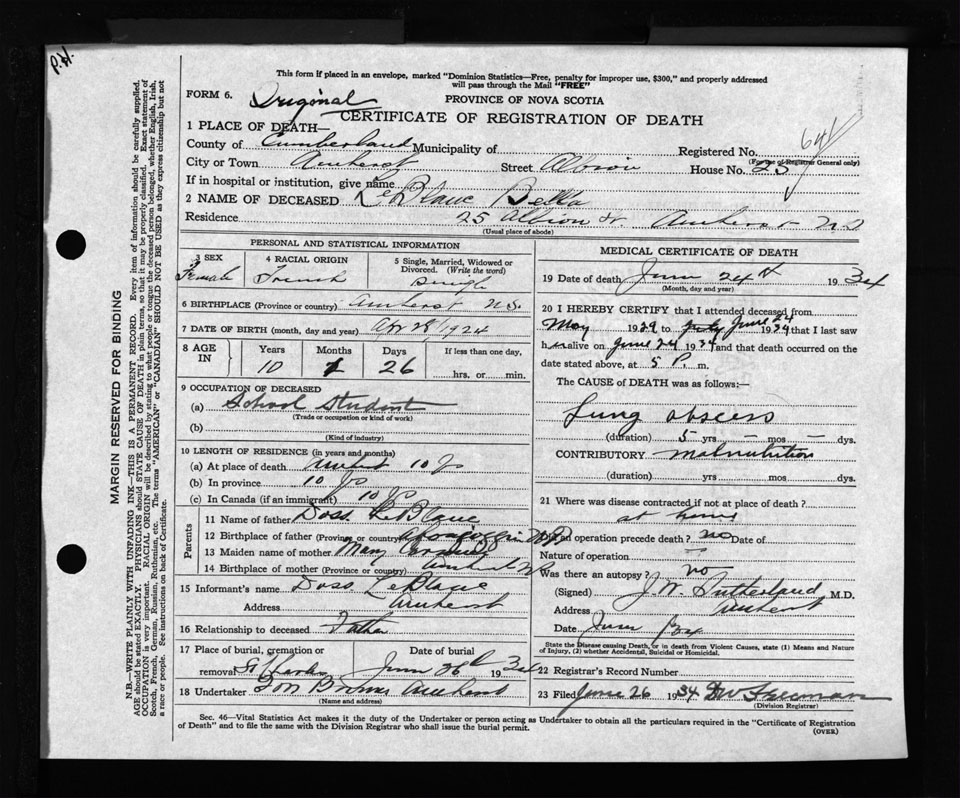 P.H.
This form if placed in an envelope, marked "Dominion Statistics—Free, penalty for improper use, $300," and properly addressed
will pass through the Mail "FREE"
FORM 6. Original
PROVINCE OF NOVA SCOTIA
CERTIFICATE OF REGISTRATION OF DEATH
1 PLACE OF DEATH—
County of Cumberland Municipality of Registered No.
(For use of Registrar General only)
City or Town Amherst Street Albion House No. 25
If in hospital or institution, give name
2 NAME OF DECEASED LeBlanc Bella
Residence 25 Albion St. Amherst N.S.
(Usual place of abode)
PERSONAL AND STATISTICAL INFORMATION
3 SEX Female
4 RACIAL ORIGIN French
5 Single, Married, Widowed or Divorced. (Write the word) Single
6 BIRTHPLACE (Province or country) Amherst N.S.
7 DATE OF BIRTH (month, day and year) Apr 28 1924
8 AGE IN Years Months Days If less than one day,
10 1 26 hrs. or min.
9 OCCUPATION OF DECEASED
(a) School Student
(Trade or occupation or kind of work)
(b)
(Kind of industry)
10 LENGTH OF RESIDENCE (in years and months)
(a) At place of death Amherst 10
(b) In province 10
(c) In Canada (if an immigrant) 10
Parents
11 Name of father LeBlanc
12 Birthplace of father (Province or country)
13 Maiden name of mother Mary
14 Birthplace of mother (Province or country) Amherst N.S.
15 Informant's name LeBlanc
Address Amherst
16 Relationship to deceased Father
17 Place of burial, cremation or removal Date of burial
June 26th 1934
18 Undertaker Brown Amherst
(Name and address)
MEDICAL CERTIFICATE OF DEATH
19 Date of death June 24th 1934
(Month, day and year)
20 I HEREBY CERTIFY that I attended deceased from
May 1929 to June 24 1934 that I last saw
h er alive on June 24 1934 and that death occurred on the
date stated above, at 5 P. m.
The CAUSE of DEATH was as follows:—
Lung abscess
(duration) 5 yrs — mos — dys.
CONTRIBUTORY Malnutrition
(duration) yrs mos dys.
21 Where was disease contracted if not at place of death?
at home
Did an operation precede death? no Date of
Nature of operation —
Was there an autopsy? no
(Signed) J. W. Sutherland M.D.
Address Amherst
Date June
State the Disease causing Death, or in death from Violent Causes, state (1) Means and Nature
of Injury, (2) whether Accidental, Suicidal or Homicidal.
22 Registrar's Record Number
23 Filed June 26 1934
(Division Registrar)
Sec. 46—Vital Statistics Act makes it the duty of the Undertaker or person acting as Undertaker to obtain all the particulars required in the "Certificate of Registration
of Death" and to file the same with the Division Registrar who shall issue the burial permit.
(OVER)
MARGIN RESERVED FOR BINDING
N.B.—WRITE PLAINLY WITH UNFADING INK—THIS IS A PERMANENT RECORD. Every item of information should be carefully supplied.
AGE should be stated EXACTLY. PHYSICIANS should STATE CAUSE OF DEATH in plain terms, so that it may be properly classified. Exact statement of
OCCUPATION is very important. RACIAL ORIGIN will be described by stating to what people or tongue the deceased person belonged, whether English, Irish,
Scotch, French, German, Russian, Ruthenian, etc. The terms "AMERICAN" or "CANADIAN" SHOULD NOT BE USED as they express citizenship but not
a race or people. See instructions on back of Certificate.